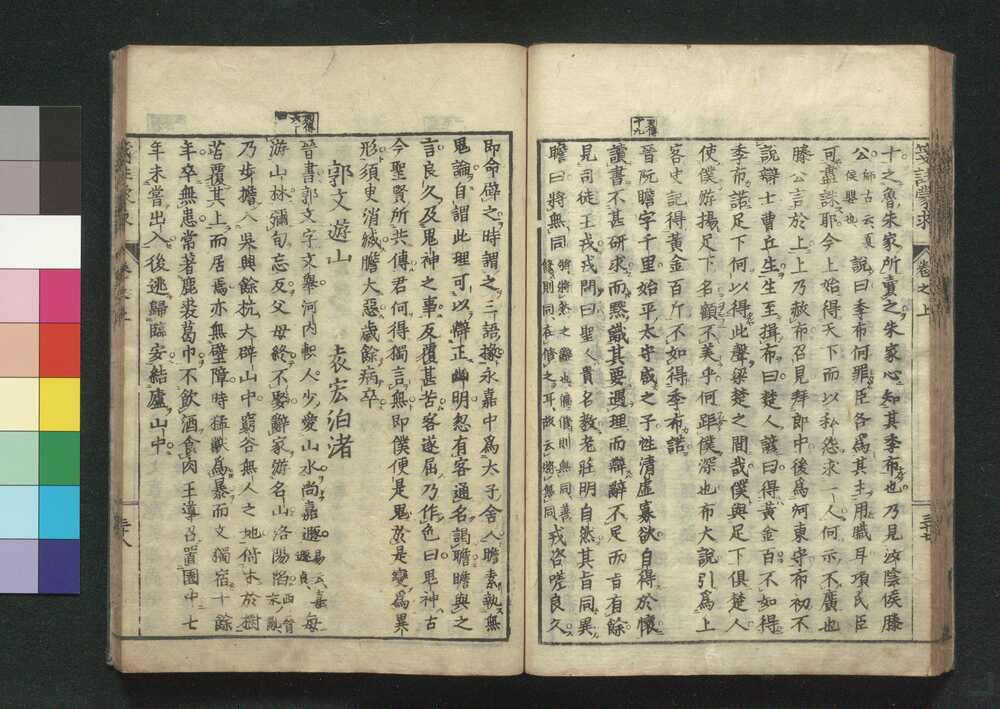 箋註蒙求 卷之上
十之魯朱家所賣之朱家心知其季布也乃見汝陰侯滕
公師古云夏侯嬰也說曰季布何罪臣各爲其主用職耳項氏臣
可盡誅耶今上始得天下而以私怨求一人何示不廣也
滕公言於上上乃赦布召見拜郎中後爲河東守布初不
說辯士曹丘生生至揖布曰楚人諺曰得黃金百不如得
季布諾足下何以得此聲梁楚之間哉僕與足下俱楚人
使僕游揚足下名顧不美乎何距僕深也布大說引爲上
客史記得黃金百斤不如得季布諾
晉阮瞻字千里始平太守咸之子性清虛寡欲自得於懷
讀書不甚研求而默識其要遇理而辯辭不足而旨有餘
見司徒王戎戎問曰聖人貴名教老莊明自然其旨同異
瞻曰將無同戎咨嗟良久
即命辟之時謂之三語掾永嘉中爲太子舍人瞻素執無
鬼論自謂此理可以辯正幽明忽有客通名謁瞻瞻與之
言良久及鬼神之事反覆甚苦客遂屈乃作色曰鬼神古
今聖賢所共傳君何得獨言無即僕便是鬼於是變爲異
形須臾消滅瞻大惡歲餘病卒
郭文遊山 袁宏泊渚
晉書郭文字文舉河內軹人少愛山水尚嘉遯每
游山林彌旬忘反父母終不娶辭家游名山洛陽陷
乃步擔入吳興餘杭大辟山中窮谷無人之地倚木於樹
苫覆其上而居焉亦無壁障時猛獸爲暴而文獨宿十餘
年卒無患常著鹿裘葛巾不飲酒食肉王導召置園中七
年未嘗出入後逃歸臨安結廬山中